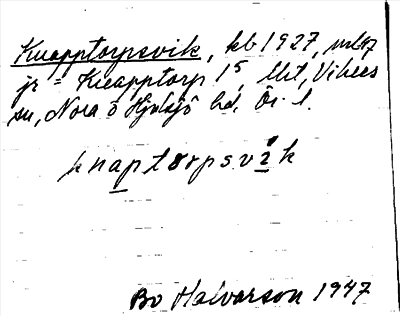 Knapptorpsvik, kb 1927, vid
jr = Knapptorp 1⁵ Mt, Vikers
sn, Nora o Hjulsjö hd, Ör. l.
knaptorpsvik
Bo Halvarson 1947